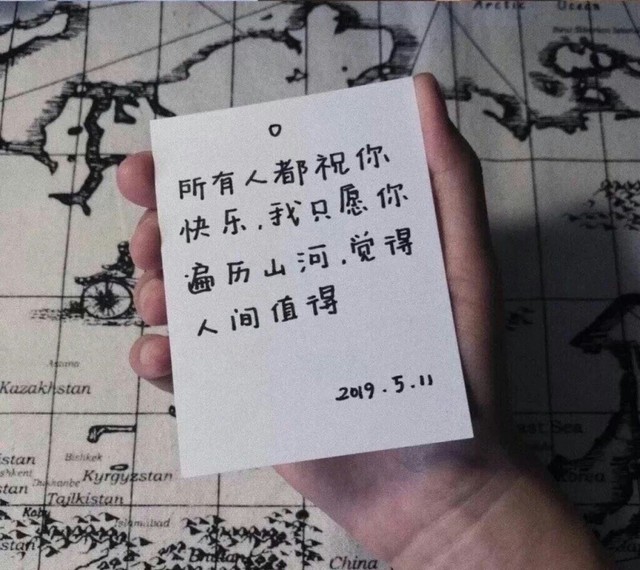 Arctic Ocean
所有人都祝你
快乐,我只愿你
遍历山河,觉得
人间值得
2019.5.11
Astana
Kazakhstan
Bishkek
Kyrgyzstan
Dushanbe
Tajikistan
Islamabad
East Sea
Korea
China